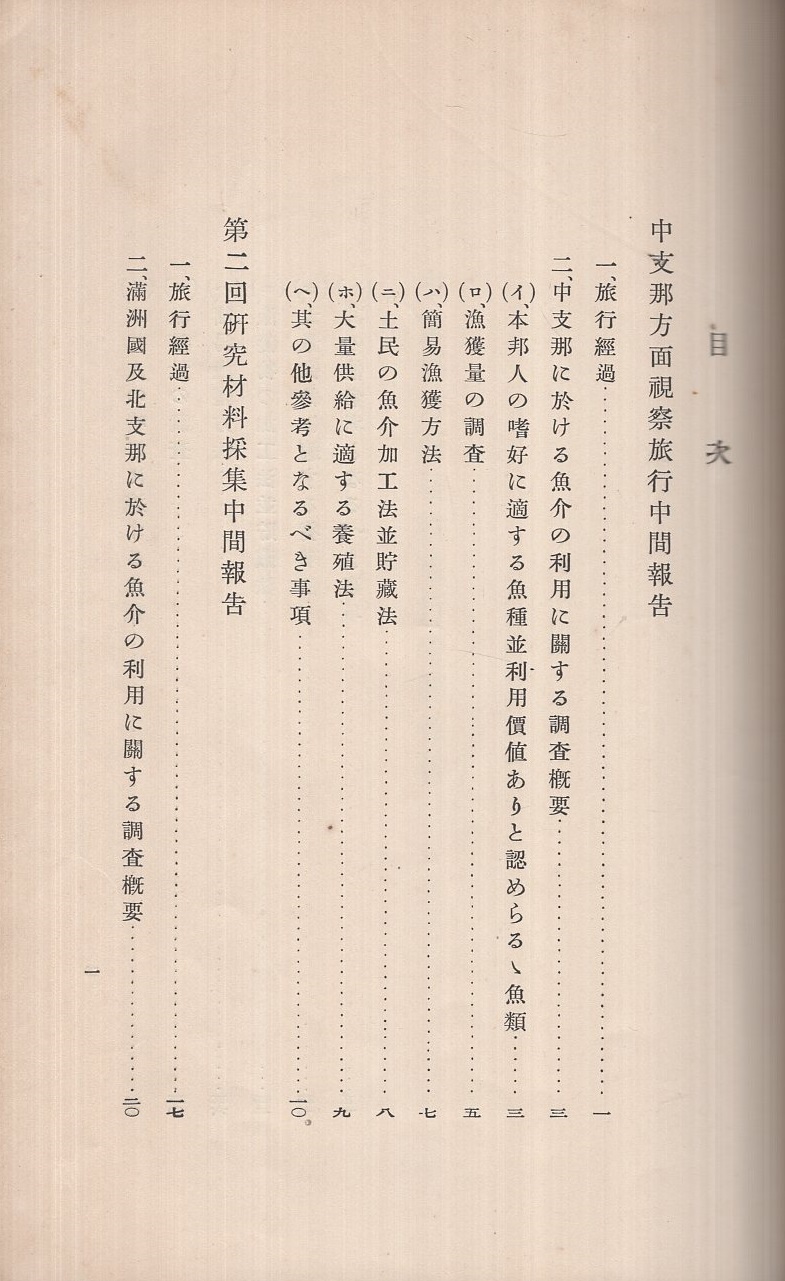 目次
中支那方面視察旅行中間報告
一、旅行經過……一
二、中支那に於ける魚介の利用に關する調査槪要……三
(イ)、本邦人の嗜好に適する魚種並利用價値ありと認めらるゝ魚類……三
(ロ)、漁獲量の調査……五
(ハ)、簡易漁獲方法……七
(ニ)、土民の魚介加工法並貯藏法……八
(ホ)、大量供給に適する養殖法……九
(ヘ)、其の他參考となるべき事項……一〇
第二回硏究材料採集中間報告
一、旅行經過……一七
二、滿洲國及北支那に於ける魚介の利用に關する調査槪要……二〇
一